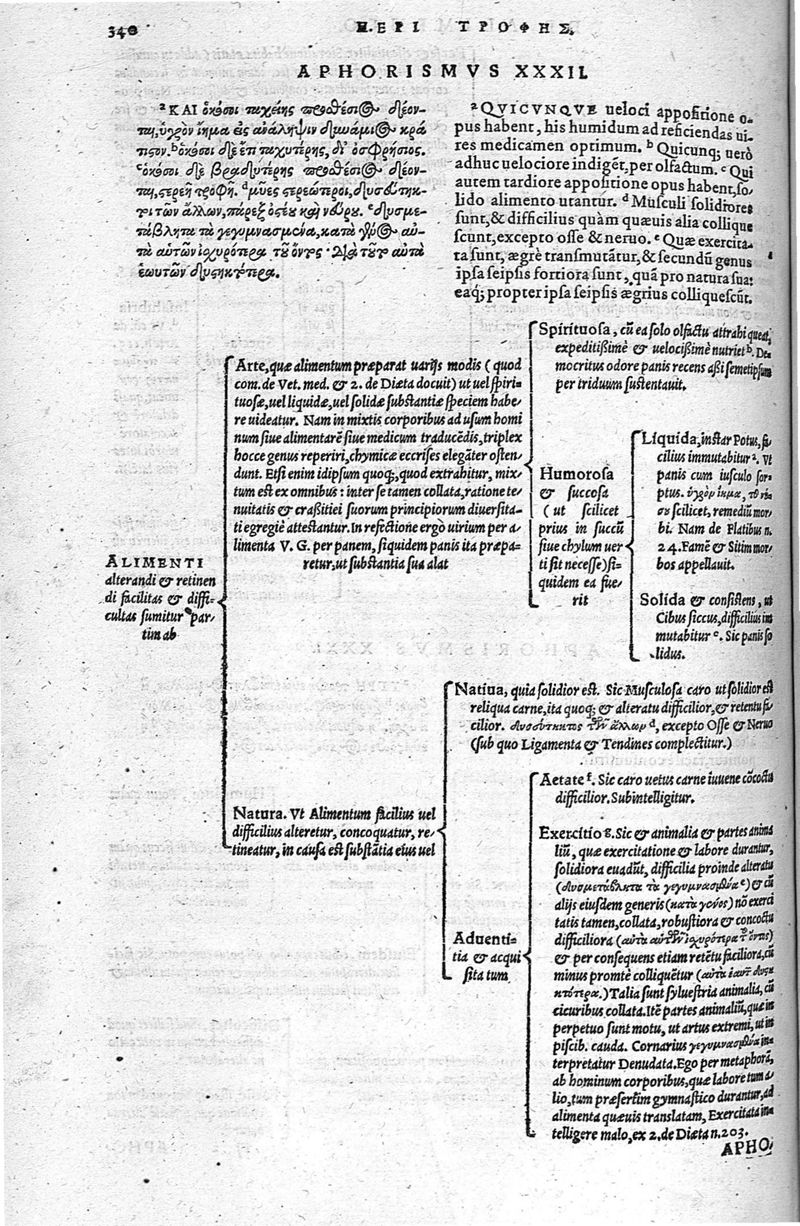 340
ΠΕΡΙ ΤΡΟΦΗΣ.
APHORISMVS XXXII.
ᵃ ΚΑΙ ὁκόσοι ταχείης προσθέσιος δέον-
ται, ὑγρὸν ἴημα εἰς ἀνάληψιν δυνάμιος κρά
τιστον. ᵇ ὁκόσοι δὲ ἔτι ταχυτέρης, δι᾽ ὀσφρήσιος.
ᶜ ὁκόσοι δὲ βραδυτέρης προσθέσιος δέον-
ται, στερεὴ τροφή. ᵈ μύες στερεώτεροι, δυσεύτηκ-
τοι τῶν ἄλλων, πάρεξ ὀστέου καὶ νεύρου. ᵉ δυσμε-
τάβλητα τὰ γεγυμνασμένα, κατὰ γένος αὐ-
τὰ αὑτῶν ἰσχυρότερα τοῦ ὄντος· διὰ τοῦτο αὐτὰ
ἑωυτῶν δυσηκτότερα.
ᵃ QVICVNQVE veloci appositione o-
pus habent, his humidum ad reficiendas ui-
res medicamen optimum. ᵇ Quicunq; uerò
adhuc velociore indigẽt, per olfactum. ᶜ Qui
autem tardiore appositione opus habent, so-
lido alimento utantur. ᵈ Musculi solidiores
sunt, & difficilius quàm quæuis alia collique
scunt, excepto osse & neruo. ᵉ Quæ exercita-
ta sunt, ægrè transmutãtur, & secundũ genus
ipsa seipsis fortiora sunt, quã pro natura sua:
eaq; propter ipsa seipsis ægrius colliquescũt.
ALIMENTI
alterandi & retinen
di facilitas & diffi-
cultas sumitur par-
tim ab
Arte, quæ alimentum præparat uarijs modis ( quod
com. de Vet. med. & 2. de Diæta docuit) ut uel spiri-
tuosæ, uel liquidæ, uel solidæ substantiæ speciem habe-
re uideatur. Nam in mixtis corporibus ad usum homi
num siue alimentarẽ siue medicum traducẽdis, triplex
hocce genus reperiri, chymicæ eccrises elegãter osten-
dunt. Etsi enim idipsum quoq;, quod extrahitur, mix-
tum est ex omnibus: inter se tamen collata, ratione te-
nuitatis & crassitiei suorum principiorum diuersita-
ti egregiè attestantur. In refectione ergò uirium per a-
limenta V. G. per panem, siquidem panis ita præpa-
retur, ut substantia sua alat
Spirituosa, cũ ea solo olfactu attrahi queat,
expeditißimè & uelocißimè nutriet ᵇ. De-
mocritus odore panis recens aßi semetipsum
per triduum sustentauit.
Humorosa
& succosa
( ut scilicet
prius in succũ
siue chylum uer
ti sit necesse) si-
quidem ea fue-
rit
Liquida, instar Potus, fa-
cilius immutabitur ᵃ. Vt
panis cum iusculo sor-
ptus. ὑγρὸν ἴημα, τῆς νό-
σου scilicet, remediũ mor-
bi. Nam de Flatibus n.
24. Famẽ & Sitim mor-
bos appellauit.
Solida & consistens, ut
Cibus siccus, difficilius im
mutabitur ᶜ. Sic panis so-
lidus.
Natura. Vt Alimentum facilius uel
difficilius alteretur, concoquatur, re-
tineatur, in causa est substãtia eius uel
Natiua, quia solidior est. Sic Musculosa caro ut solidior est
reliqua carne, ita quoq; & alteratu difficilior, & retentu fa-
cilior. δυσσύντηκτος τῶν ἄλλων ᵈ, excepto Osse & Neruo
(sub quo Ligamenta & Tendines complectitur.)
Aduenti-
tia & acqui
sita tum
Aetate ᶠ. Sic caro uetus carne iuuene cõcoctu
difficilior. Subintelligitur.
Exercitio ᵍ. Sic & animalia & partes anima
liũ, quæ exercitatione & labore durantur,
solidiora euadũt, difficilia proinde alteratu
(δυσμετάβλητα τὰ γεγυμνασμένα ᵉ) & cũ
alijs eiusdem generis (κατὰ γένος) nõ exerci
tatis tamen, collata, robustiora & concoctu
difficiliora (αὐτὰ αὑτῶν ἰσχυρότερα τοῦ ὄντος)
& per consequens etiam retẽtu faciliora, cũ
minus promtè colliquẽtur (αὐτὰ ἑαυτῶν δυση
κτότερα.) Talia sunt syluestria animalia, cũ
cicuribus collata. Itẽ partes animaliũ, quæ in
perpetuo sunt motu, ut artus extremi, ut in
piscib. cauda. Cornarius γεγυμνασμένα in-
terpretatur Denudata. Ego per metaphorã,
ab hominum corporibus, quæ labore tum a-
lio, tum præsertim gymnastico durantur, ad
alimenta quæuis translatam, Exercitata in-
telligere malo, ex 2. de Diæta n. 203.
APHO